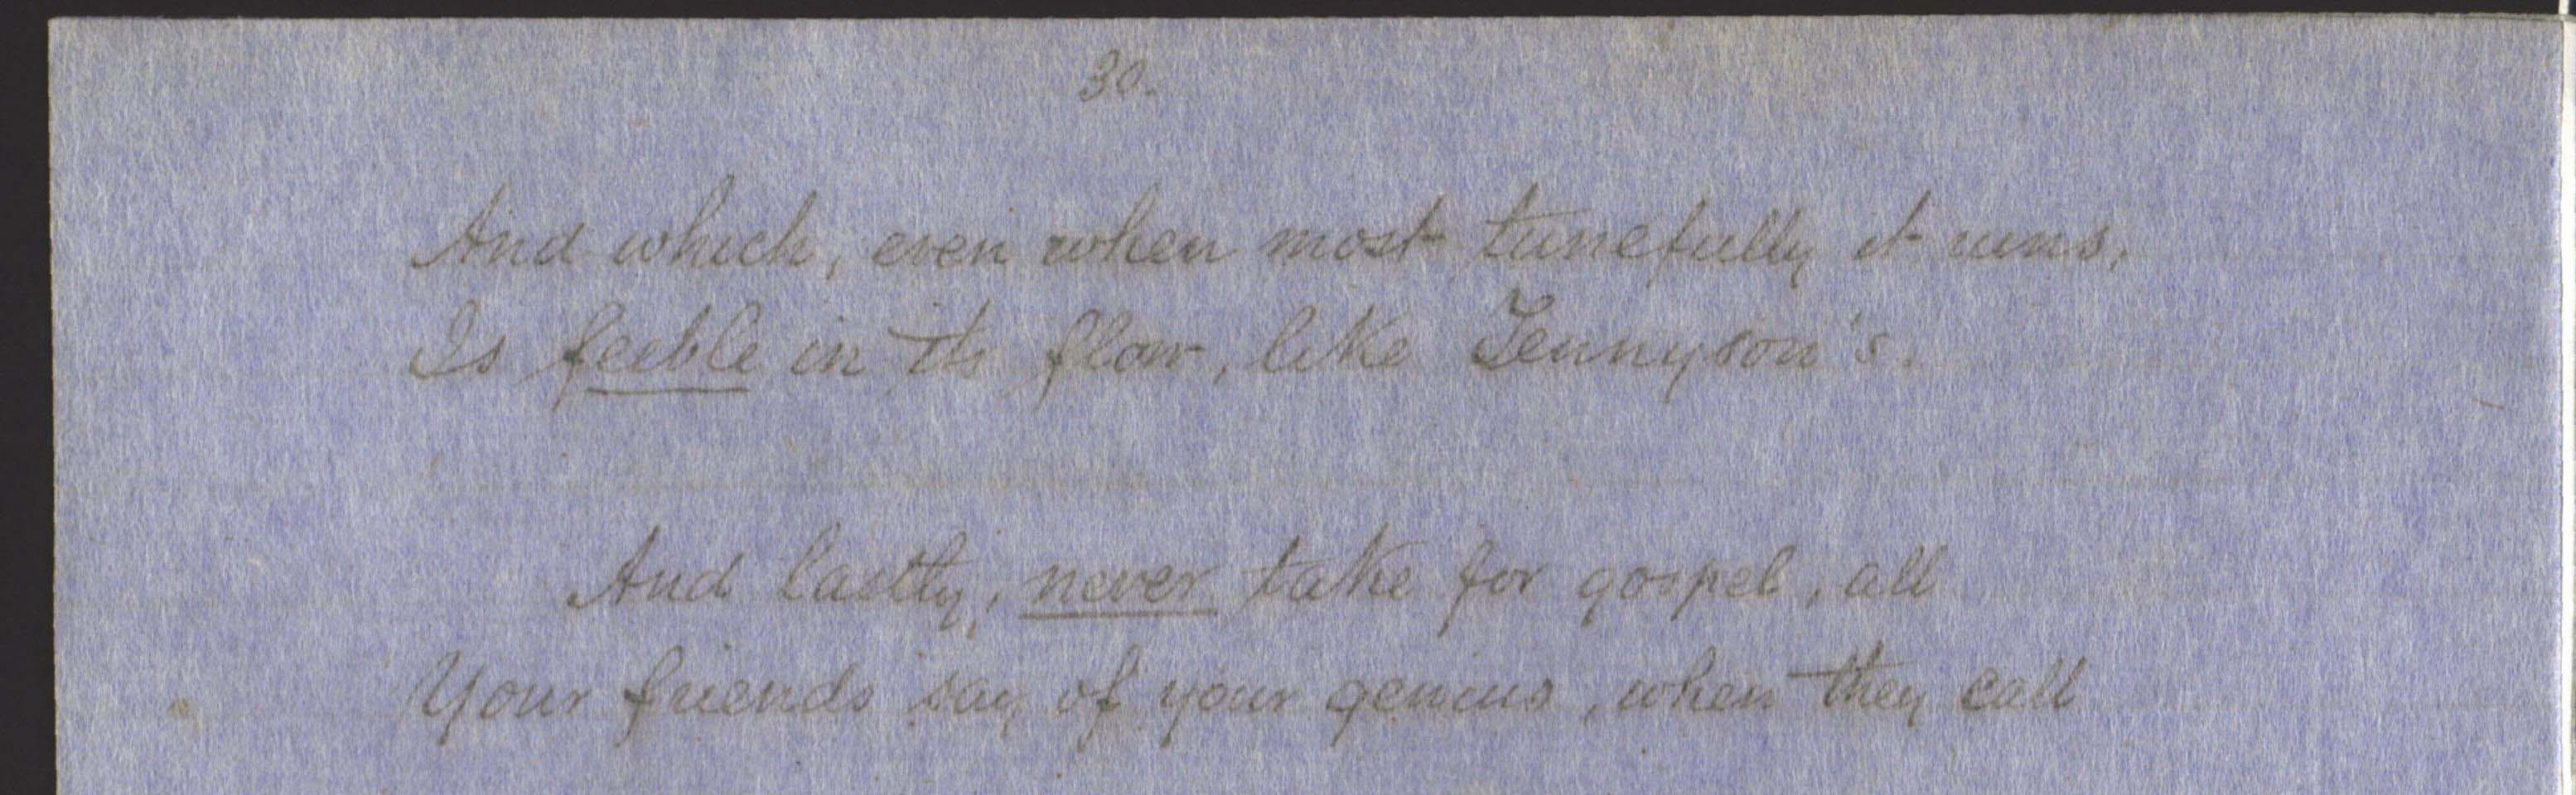 30.
And which, even when most tunefully it runs,
Is feeble in its flow, like Tennyson's.
And lastly, never take for gospel, all
Your friends say of your genius, when they call